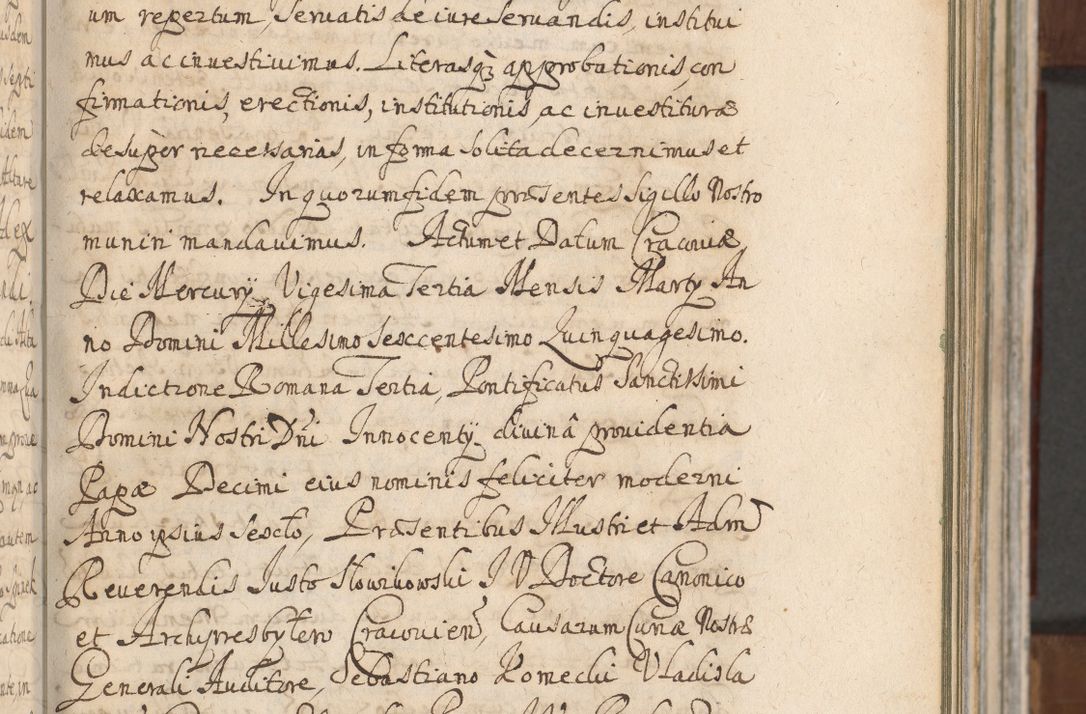 um repertum, servatis de iure servandis, institui
mus ac investivimus. Literasq3 approbationis, con
firmationis, erectionis, institutionis ac investituræ
desuper necessarias, in forma solita decernimus et
relaxamus. In quorum fidem præsentes Sigillo Nostro
muniri mandavimus. Actum et Datum Cracoviæ
Die Mercurÿ Vigesima Tertia Mensis Martÿ An
no Domini Millesimo Sexcentesimo Quinquagesimo.
Indictione Romana Tertia, Pontificatus Sanctissimi
Domini Nostri Dni Innocentÿ divinâ providentia
Papæ Decimi eius nominis feliciter moderni
Anno ipsius Sexto, Præsentibus Illustri et Adm
Reverendis Justo Słowikowski I V Doctore Canonico
et Archypresbytero Cracovien, Causarum Curiæ Nostræ
Generali Auditore, Sebastiano Romecki Vladisla